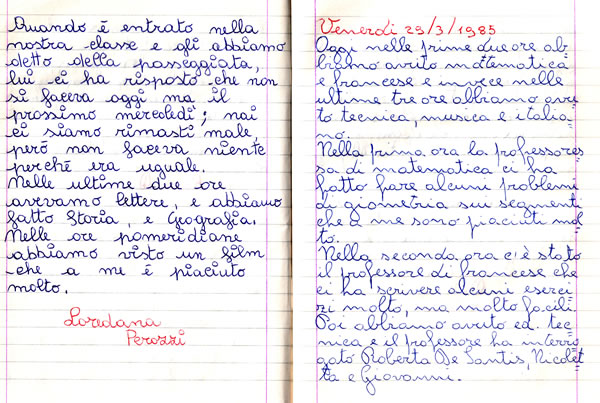 Quando è entrato nella
nostra classe e gli abbiamo
detto della passeggiata,
lui ci ha risposto che non
si faceva oggi ma il
prossimo mercoledì; noi
ci siamo rimasti male,
però non faceva niente
perché era uguale.
Nelle ultime due ore
avevamo lettere, e abbiamo
fatto Storia, e Geografia.
Nelle ore pomeridiane
abbiamo visto un film
che a me è piaciuto
molto.
Loredana
Perozzi
Venerdì 29/3/1985
Oggi nelle prime due ore ab=
biamo avuto matematica
e francese e invece nelle
ultime tre ore abbiamo avu=
to tecnica, musica e italia=
no.
Nella prima ora la professores=
sa di matematica ci ha
fatto fare alcuni problemi
di giometria sui segmenti
che a me sono piaciuti mol=
to.
Nella seconda ora c'è stato
il professore di francese che
ci ha scrivere alcuni eserci=
zi molto, ma molto facili.
Poi abbiamo avuto ed. tec=
nica e il professore ha interro=
gato Roberta De Santis, Nicolet=
ta e Giovanni.